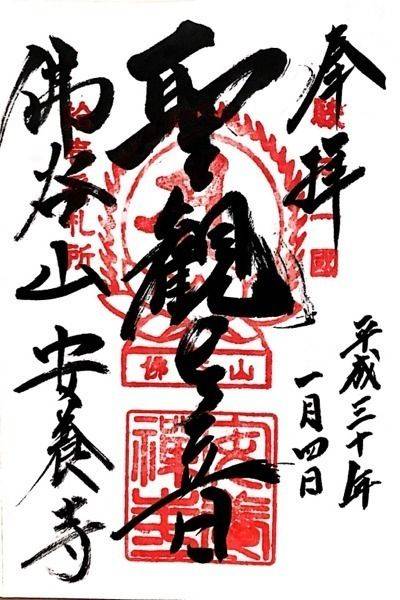 奉拝
平成三十年
一月四日
聖観世音
佛谷山 安養寺
札所
安養禅寺